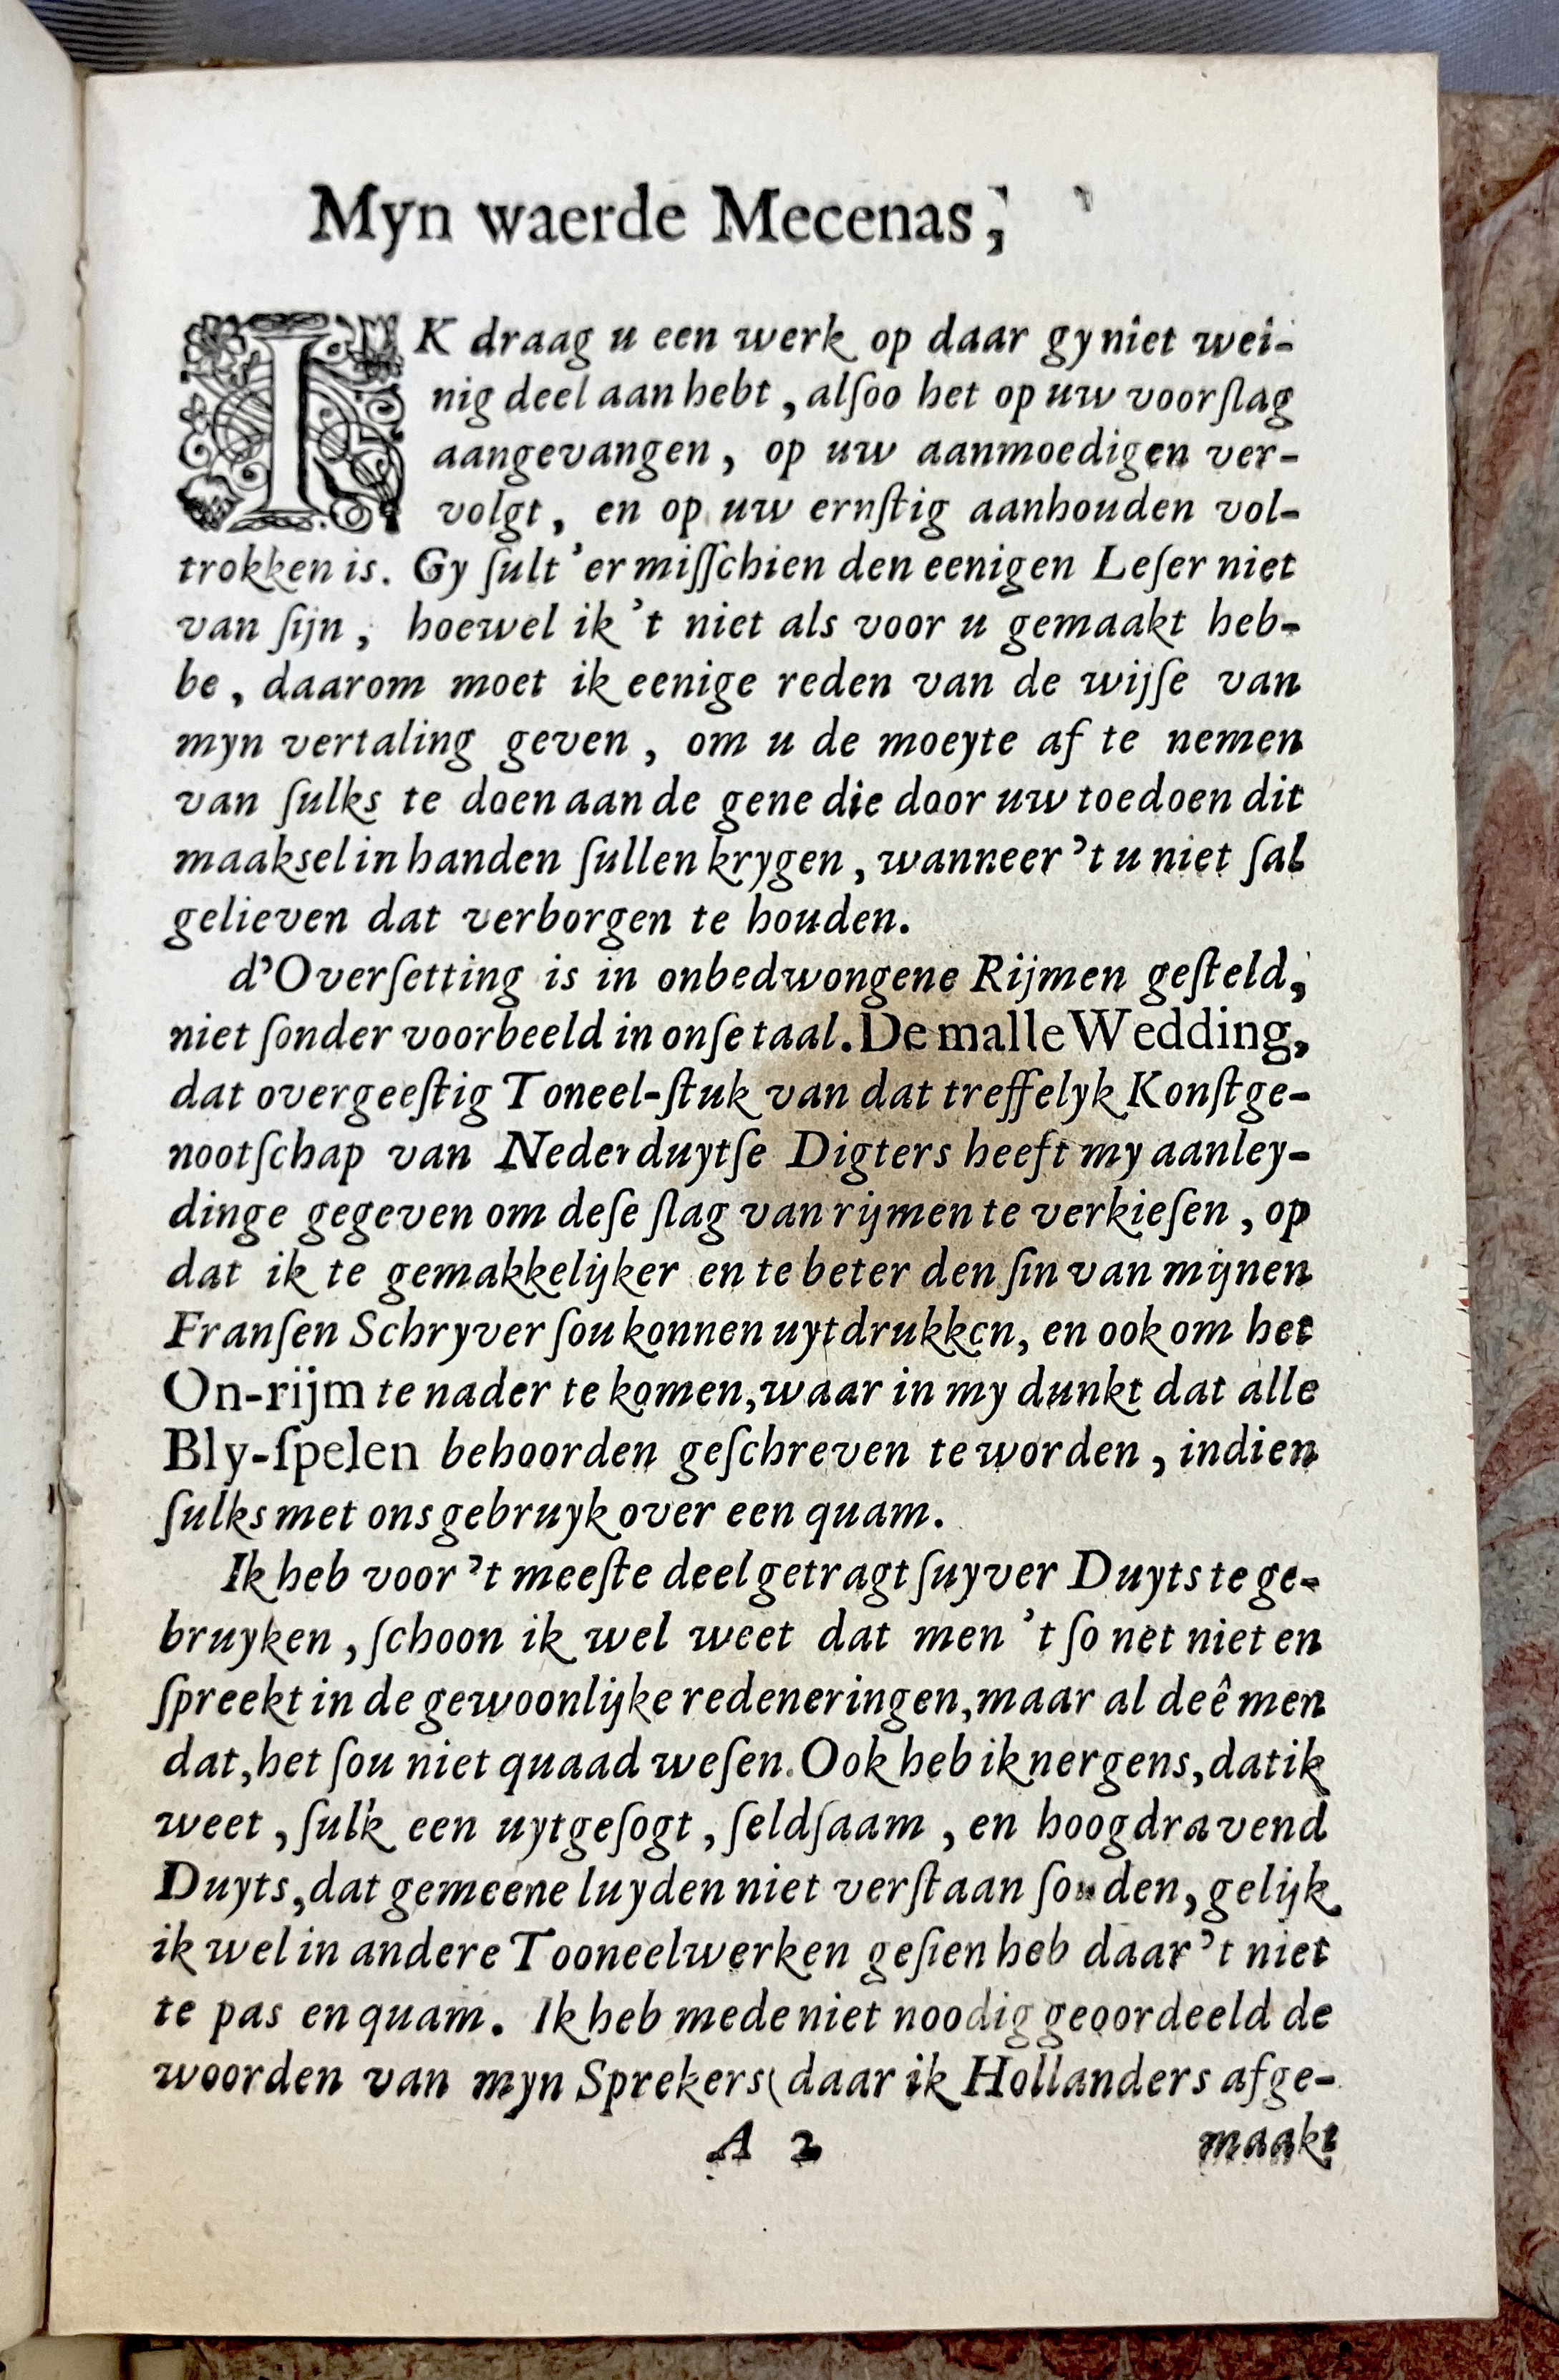 Myn waerde Mecenas,
IK draag u een werk op daar gy niet wei-
nig deel aan hebt, alſoo het op uw voorſlag
aangevangen, op uw aanmoedigen ver-
volgt, en op uw ernſtig aanhouden vol-
trokken is. Gy ſult 'er miſſchien den eenigen Leſer niet
van ſijn, hoewel ik 't niet als voor u gemaakt heb-
be, daarom moet ik eenige reden van de wijſe van
myn vertaling geven, om u de moeyte af te nemen
van ſulks te doen aan de gene die door uw toedoen dit
maaksel in handen ſullen krygen, wanneer 't u niet ſal
gelieven dat verborgen te houden.
d'Overſetting is in onbedwongene Rijmen geſteld,
niet ſonder voorbeeld in onſe taal. De malle Wedding,
dat overgeeſtig Toneel-ſtuk van dat treffelyk Konſtge-
nootſchap van Nederduytſe Digters heeft my aanley-
dinge gegeven om deſe ſlag van rijmen te verkieſen, op
dat ik te gemakkelijker en te beter den ſin van mijnen
Franſen Schryver ſou konnen uytdrukken, en ook om het
On-rijm te nader te komen, waar in my dunkt dat alle
Bly-ſpelen behoorden geſchreven te worden, indien
ſulks met ons gebruyk over een quam.
Ik heb voor 't meeſte deel getragt ſuyver Duyts te ge-
bruyken, ſchoon ik wel weet dat men 't ſo net niet en
ſpreekt in de gewoonlijke redeneringen, maar al deê men
dat, het ſou niet quaad weſen. Ook heb ik nergens, dat ik
weet, ſulk een uytgeſogt, ſeldſaam, en hoogdravend
Duyts, dat gemeene luyden niet verſtaan ſouden, gelijk
ik wel in andere Tooneelwerken geſien heb daar 't niet
te pas en quam. Ik heb mede niet noodig geoordeeld de
woorden van myn Sprekers (daar ik Hollanders afge-
A 2 maakt